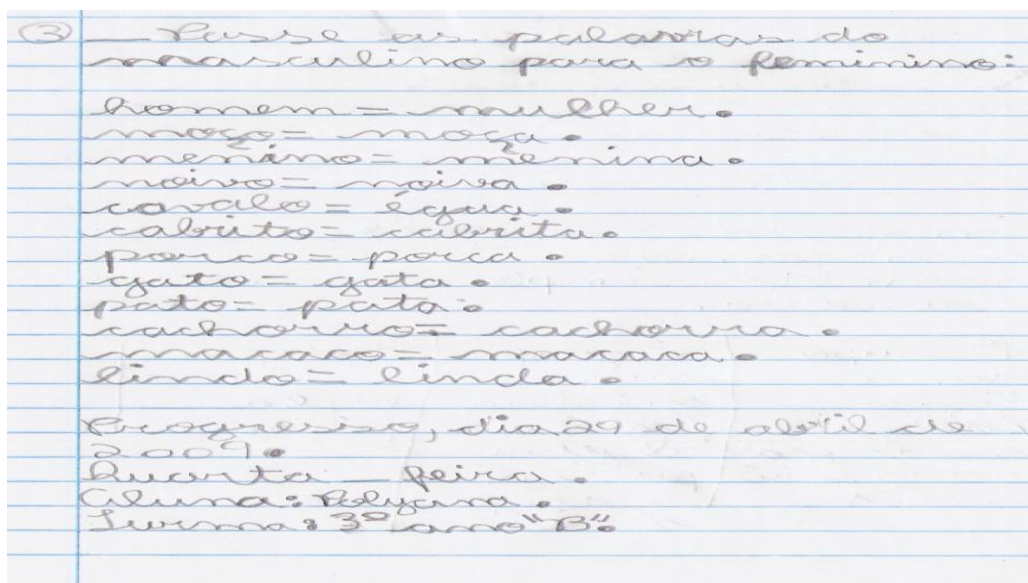 ③ — Passe as palavras do
masculino para o feminino:
homem = mulher.
moço = moça.
menino = menina.
noivo = noiva.
cavalo = égua.
cabrito = cabrita.
porco = porca.
gato = gata.
pato = pata.
cachorro = cachorra.
macaco = macaca.
lindo = linda.
Progresso, dia 29 de abril de
2009.
Quarta - feira.
Aluna: Polyana.
Turma: 3º ano "B".